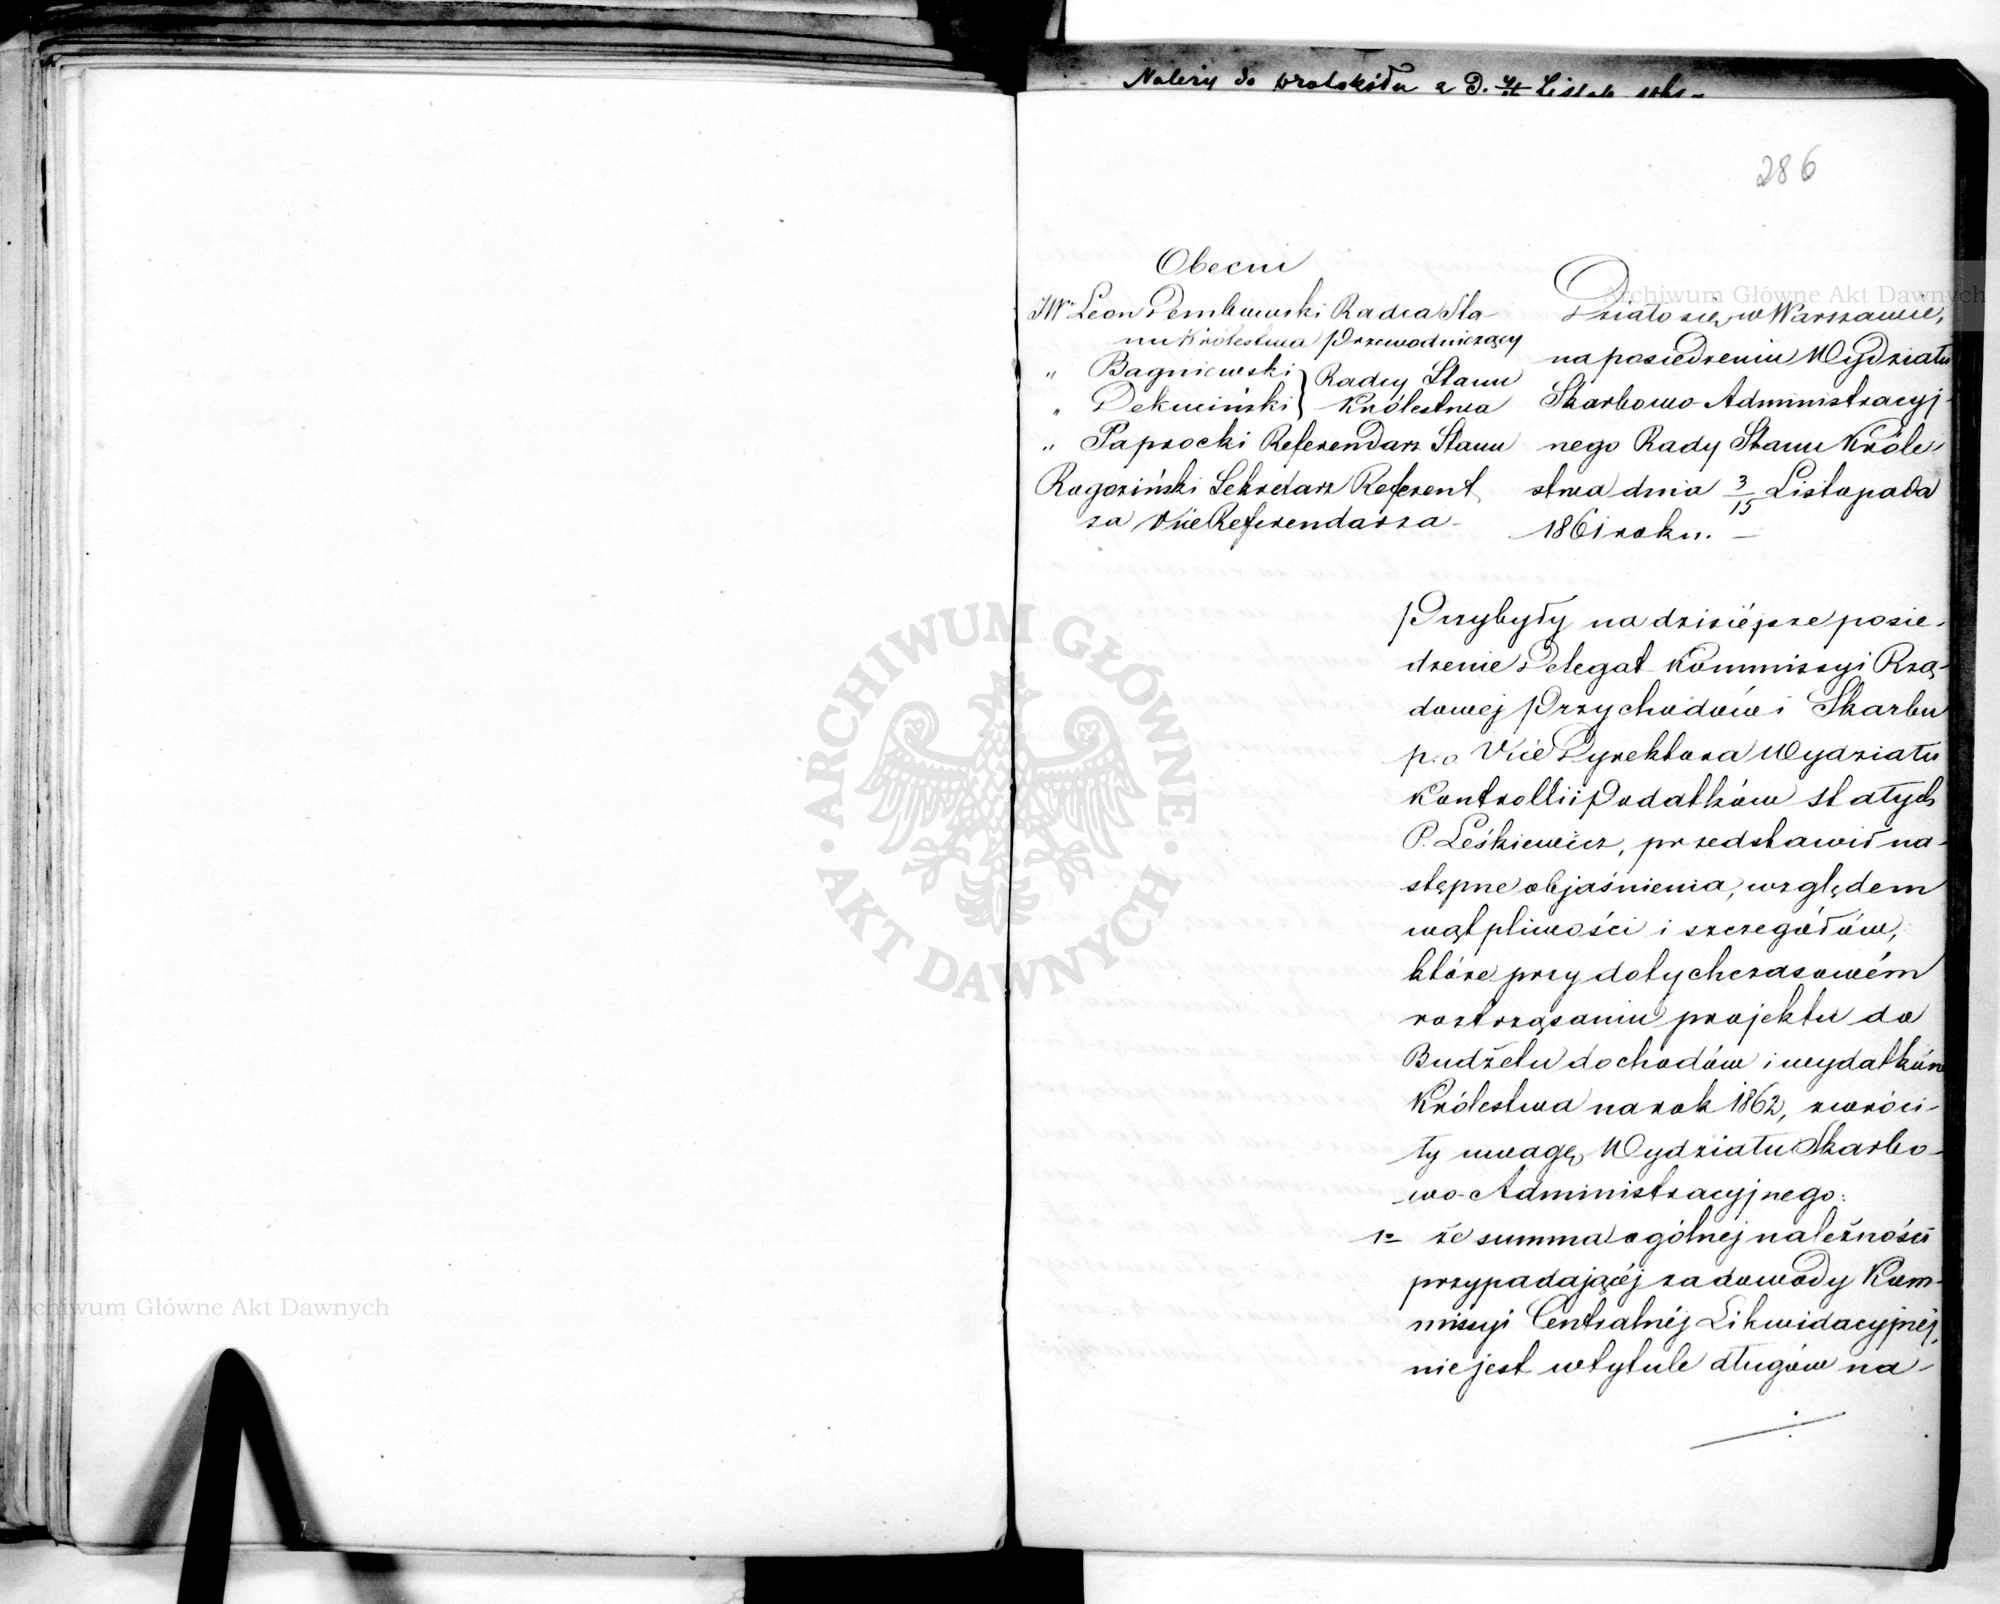 Należy do protokółu z D. Listop.
286
Obecni
JW. Leon Dembowski Radca Sta-
nu Królestwa Przewodniczący
" Bagniewski } Radcy Stanu
" Dekuciński } Królestwa
" Paprocki Referendarz Stanu
Rogoziński Sekretarz Referent
za Vice Referendarza -
Działo się w Warszawie,
na posiedzeniu Wydziału
Skarbowo-Administracyj-
nego Rady Stanu Króle-
stwa dnia 3/15 Listopada
1861 roku. -
Przybyły na dzisiéjsze posie-
dzenie Delegat Kommissyi Rzą-
dowej Przychodów i Skarbu
p.o Vice Dyrektora Wydziału
Kontrolli i Podatków stałych
P. Leśkiewicz, przedstawił na-
stępne objaśnienia, względem
wątpliwości i szczegółów,
które przy dotychczasowém
roztrząsaniu projektu do
Budżetu dochodów i wydatków
Królestwa na rok 1862, zwróci-
ły uwagę Wydziału Skarbo-
wo-Administracyjnego:
1o że summa ogólnej należności
przypadającéj za dowody Kom-
missyi Centralnéj Likwidacyjnéj,
nie jest w tytule długów na-
Archiwum Główne Akt Dawnych
ARCHIWUM GŁÓWNE AKT DAWNYCH
Archiwum Główne Akt Dawnych